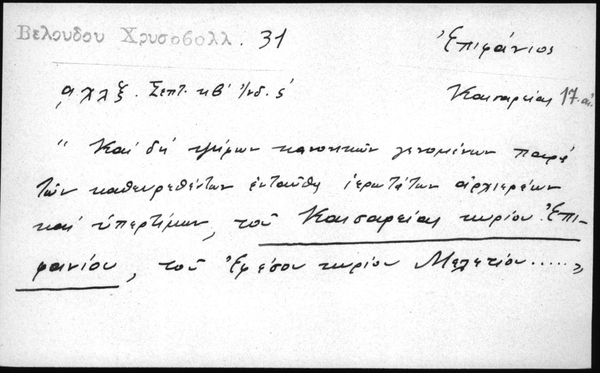 Βελουδου Χρυσοβολλ. 31
Ἐπιφάνιος
͵αχλξ. Σεπτ. κβ' ἰνδ. ς'
Καισαρείας 17. αἰ.
" Καὶ δὴ ψήφων κανονικῶν γενομένων παρὰ
τῶν καθευρεθέντων ἐνταῦθα ἱερωτάτων ἀρχιερέων
καὶ ὑπερτίμων, τοῦ Καισαρείας κυρίου Ἐπι-
φανίου, τοῦ Ἐφέσου κυρίου Μελετίου ..... "